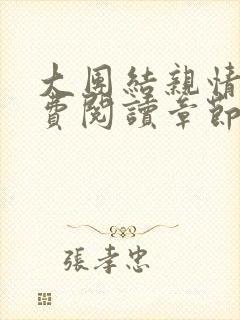 大团結親情
費閱讀章節
張孝忠